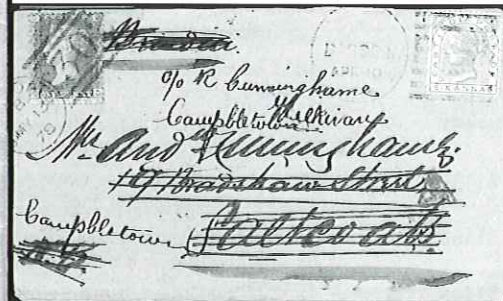 Brindisi.
c/o R Cunninghame
Campbletown Kilkivan
Mr. Andw Cunninghame.
19 Bradshaw Street,
Campbletown Saltcoats
N.B.
ANNAS